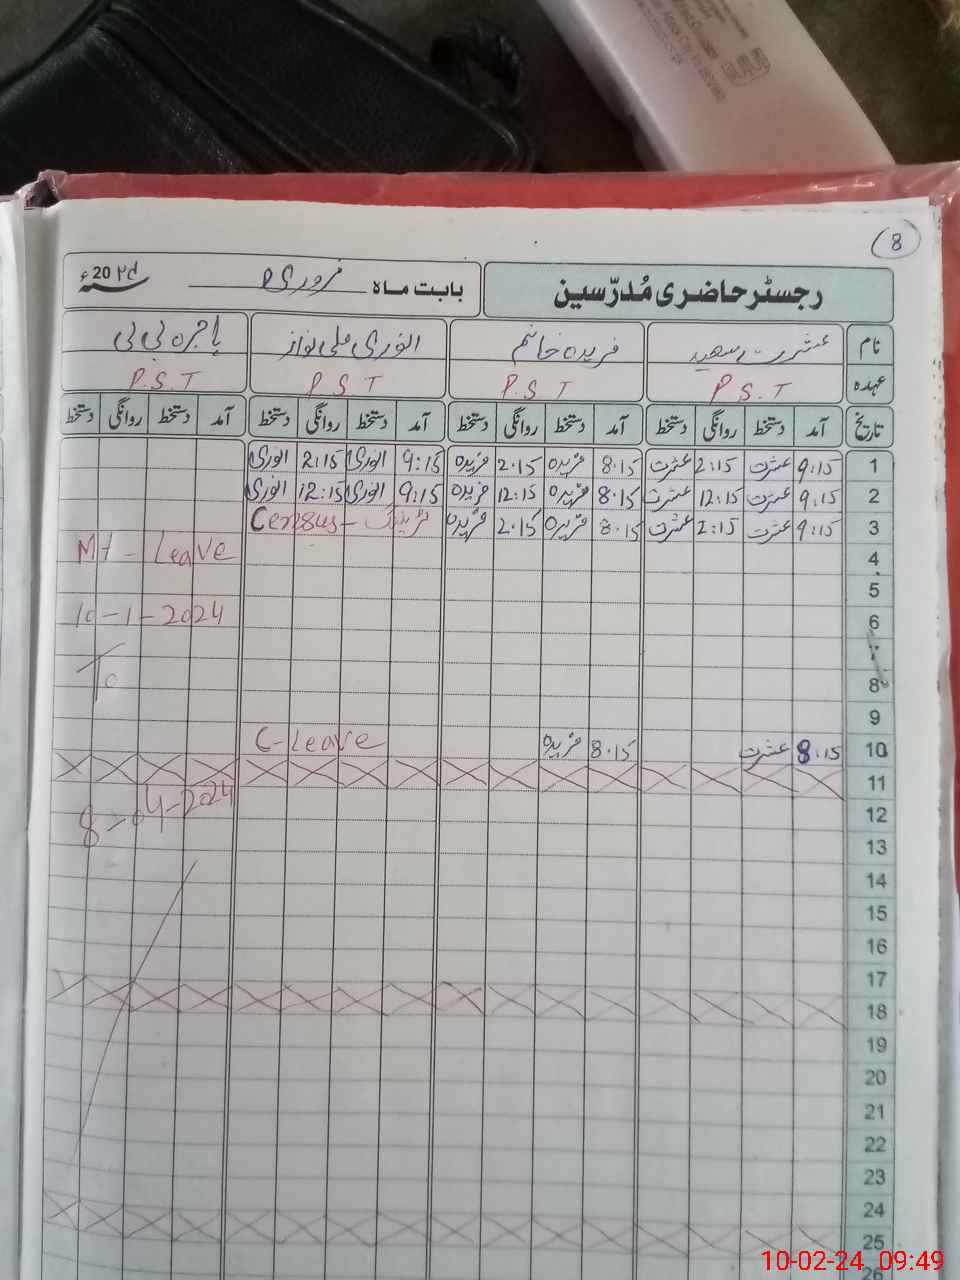 8
رجسٹر حاضری مُدرّسین
بابت ماہ فروری سنہ 2024ء
نام عشرت سعید فریدہ خانم انوری علی نواز ہاجرہ بی بی
عہدہ P.S.T P.S.T P.S.T P.S.T
تاریخ آمد دستخط روانگی دستخط آمد دستخط روانگی دستخط آمد دستخط روانگی دستخط آمد دستخط روانگی دستخط
1 9:15 عشرت 2:15 عشرت 8.15 فریدہ 2.15 فریدہ 9:15 انوری 2:15 انوری
2 9:15 عشرت 12:15 عشرت 8.15 فریدہ 12:15 فریدہ 9:15 انوری 12:15 انوری
3 9:15 عشرت 2:15 عشرت 8.15 فریدہ 2.15 فریدہ Census - ٹریننگ
4 Mt - Leave
5
6 10-1-2024
7
8 To
9
10 8:15 عشرت 8.15 فریدہ C-Leave
11
12 8-04-2024
13
14
15
16
17
18
19
20
21
22
23
24
25
26
10-02-24 09:49